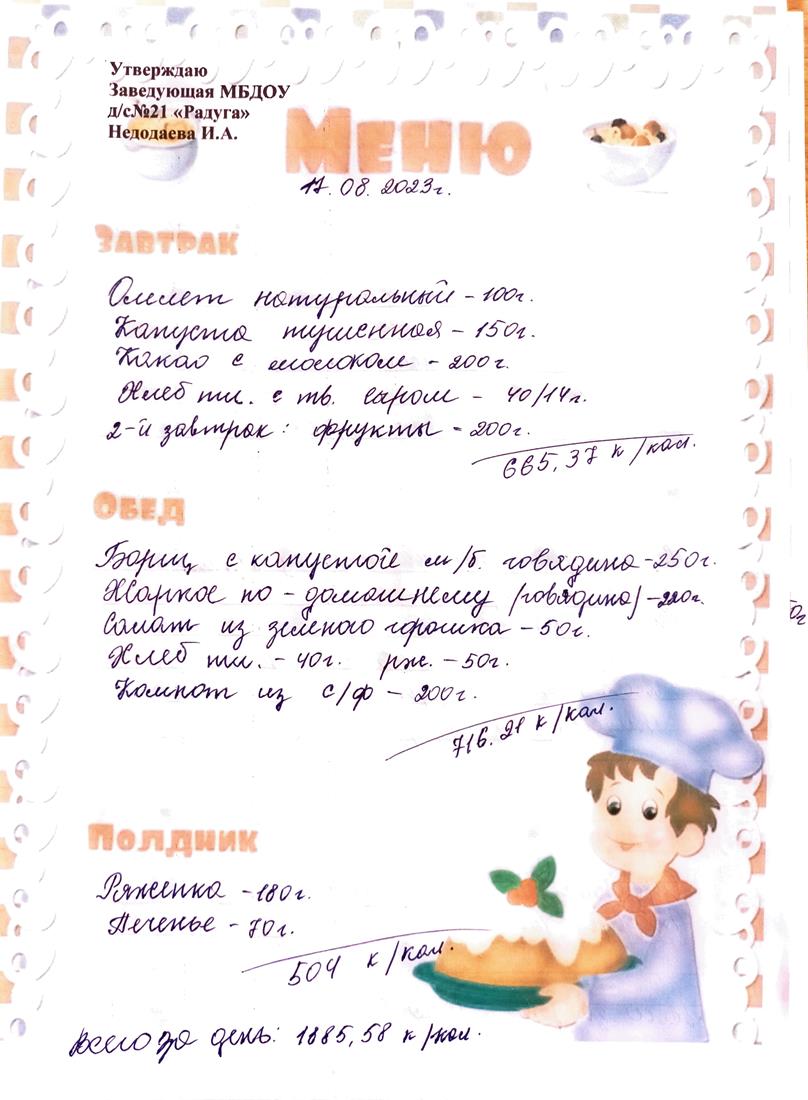 Утверждаю
Заведующая МБДОУ
д/с№21 «Радуга»
Недодаева И.А.
Меню
17.08.2023г.
Завтрак
Омлет натуральный - 100г.
Капуста тушенная - 150г.
Какао с молоком - 200г.
Хлеб пш. с тв. сыром - 40/14г.
2-й завтрак: фрукты - 200г.
665,37 к/кал.
Обед
Борщ с капустой м/б. говядина - 250г.
Жаркое по-домашнему (говядина) - 220г.
Салат из зеленого горошка - 50г.
Хлеб пш. - 40г. рж. - 50г.
Компот из с/ф - 200г.
716.21 к/кал.
Полдник
Ряженка - 180г.
Печенье - 70г.
504 к/кал.
Всего за день: 1885,58 к/кал.